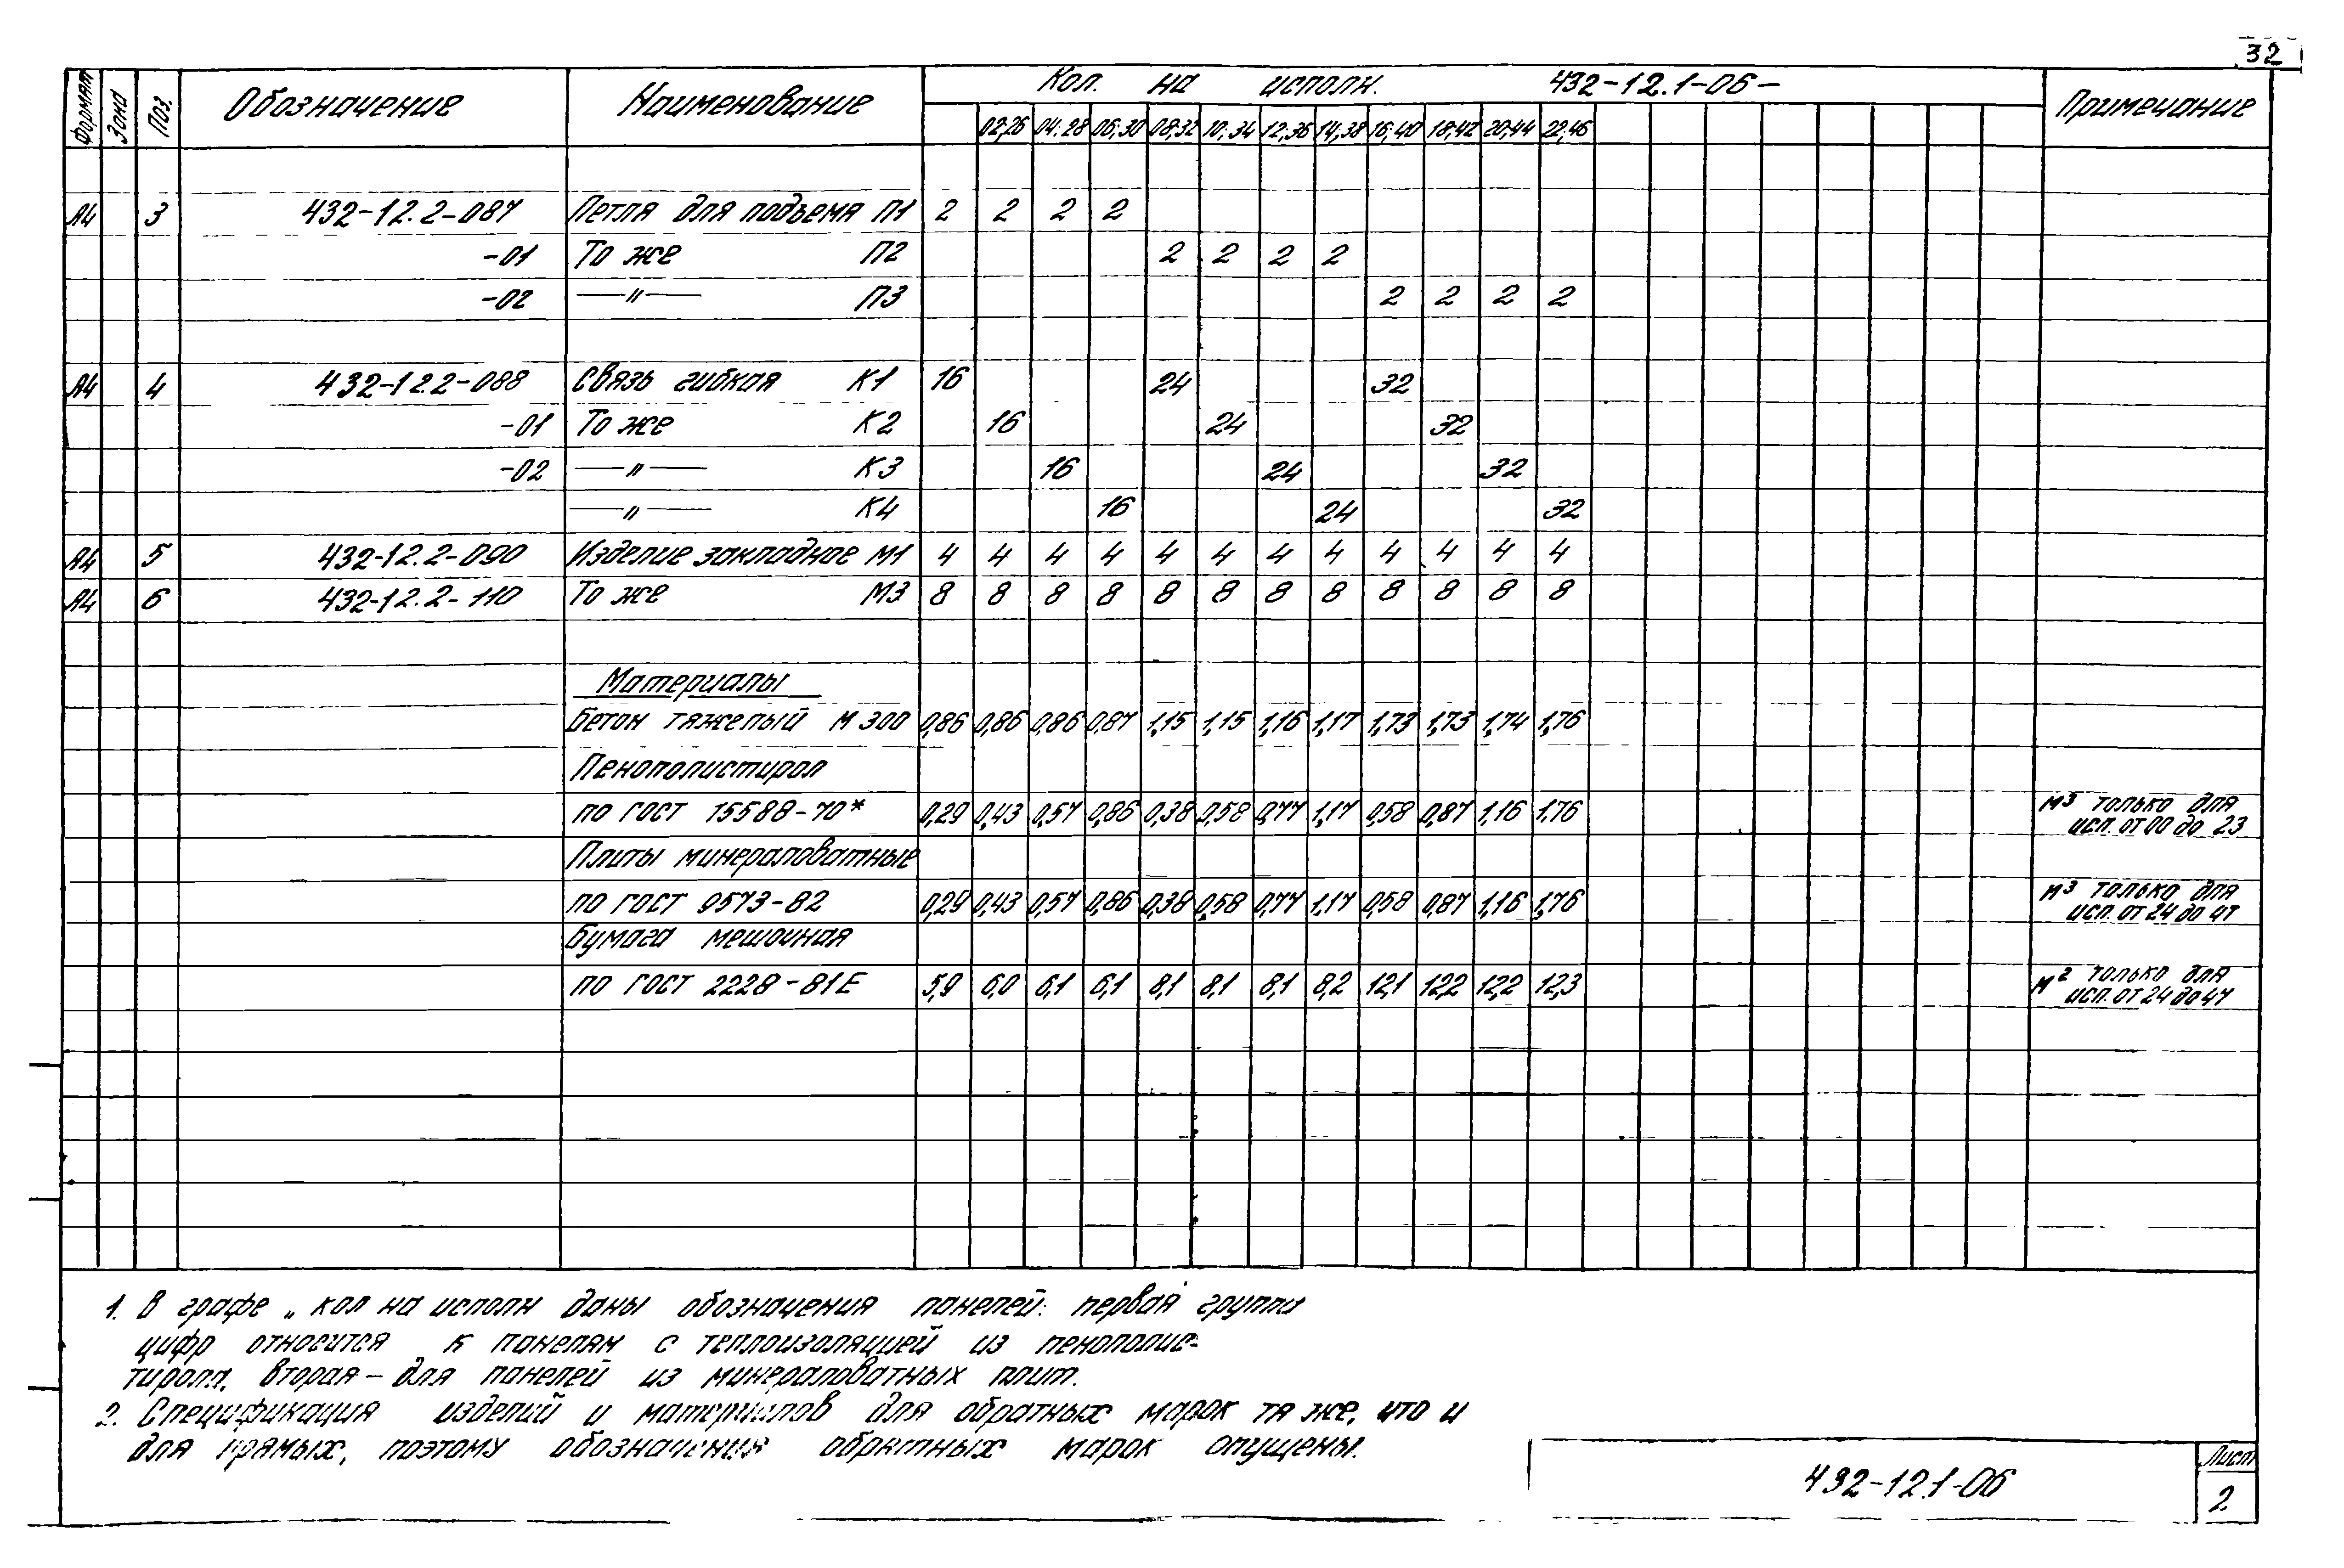 32
Формат Зона Поз. Обозначение Наименование Кол. на исполн. 432-12.1-06- Примечание
02;26 04;28 06;30 08;32 10;34 12;36 14;38 16;40 18;42 20;44 22;46
А4 3 432-12.2-087 Петля для подъема П1 2 2 2 2
-01 То же П2 2 2 2 2
-02 —〃— П3 2 2 2 2
А4 4 432-12.2-088 Связь гибкая К1 16 24 32
-01 То же К2 16 24 32
-02 —〃— К3 16 24 32
—〃— К4 16 24 32
А4 5 432-12.2-090 Изделие закладное М1 4 4 4 4 4 4 4 4 4 4 4 4
А4 6 432-12.2-110 То же М3 8 8 8 8 8 8 8 8 8 8 8 8
Материалы
Бетон тяжелый М 300 0,86 0,86 0,86 0,87 1,15 1,15 1,16 1,17 1,73 1,73 1,74 1,76
Пенополистирол
по ГОСТ 15588-70* 0,29 0,43 0,57 0,86 0,38 0,58 0,77 1,17 0,58 0,87 1,16 1,76 м³ только для
исп. от 00 до 23
Плиты минераловатные
по ГОСТ 9573-82 0,29 0,43 0,57 0,86 0,38 0,58 0,77 1,17 0,58 0,87 1,16 1,76 м³ только для
исп. от 24 до 47
Бумага мешочная
по ГОСТ 2228-81Е 5,9 6,0 6,1 6,1 8,1 8,1 8,1 8,2 12,1 12,2 12,2 12,3 м² только для
исп. от 24 до 47
1. В графе „ кол на исполн даны обозначения панелей: первая группа
цифр относится к панелям с теплоизоляцией из пенополис-
тирола, вторая – для панелей из минераловатных плит.
2. Спецификация изделий и материалов для обратных марок та же, что и
для прямых, поэтому обозначения обратных марок опущены.
432-12.1-06
Лист
2